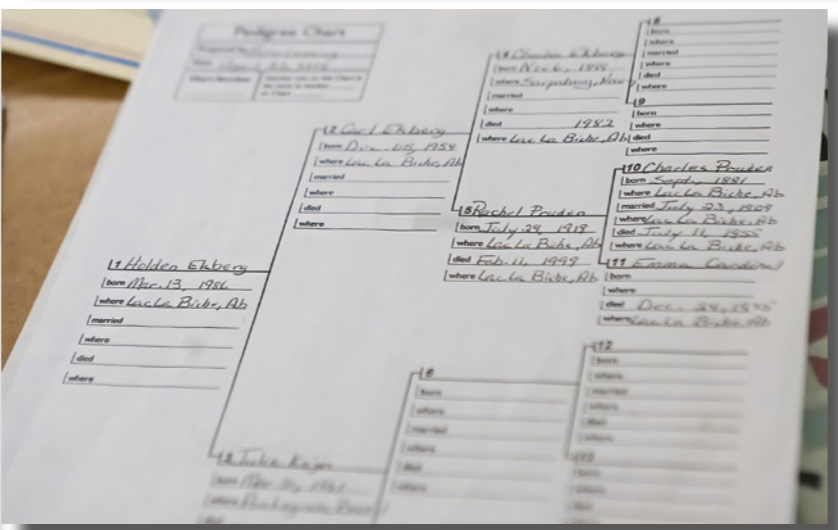 Pedigree Chart
Chart Number
1 Holden Ekberg
born Mar. 13, 1986
where Lac La Biche, Ab
married
where
died
where
2 Carl Ekberg
born Dec. 05, 1954
where Lac La Biche, Ab
married
where
died
where
3 Julie
born
where
died
4 Charles Ekberg
born Nov 6,
where
married
where
died 1982
where Lac La Biche, Ab
5 Rachel Pruden
born July 29, 1919
where Lac La Biche, Ab
died Feb. 11, 1999
where Lac La Biche, Ab
6
born
where
married
where
died
where
8
born
where
married
where
died
where
9
born
where
died
where
10 Charles Pruden
born Sept. 1881
where Lac La Biche, Ab
married July 23, 1909
where Lac La Biche, Ab
died July 11, 1955
where Lac La Biche, Ab
11 Emma Cardinal
born
where
died Dec. 24,
where Lac La Biche, Ab
12
born
where
married
where
died
where
13
born
where
died
where